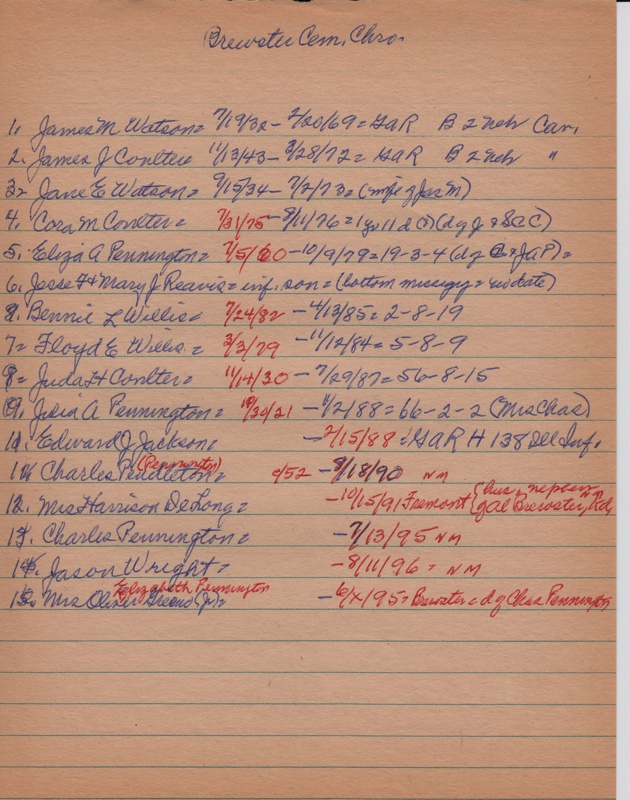 Brewster Cem. Chro.
1. James M Watson = 7/19/32 - 2/20/69 = GAR B 2 Neb Cav.
2. James J Coulter = 11/13/43 - 3/28/72 = GAR B 2 Neb "
3 = Jane E Watson = 9/15/34 - 7/2/73 = (wife of Jas M)
4. Cora M Coulter = 7/31/75 - 8/11/76 = 1 yr 11 d (?) (d of J & S C C)
5. Eliza A Pennington = 7/5/60 - 10/9/79 = 19-3-4 (d of C & J A P) =
6. Jesse F & Mary J Reavis = inf. son = (bottom missing = no date)
8. Bennie L Willis = 7/24/82 - 4/13/85 = 2-8-19
7 = Floyd E Willis = 3/3/79 - 11/12/84 = 5-8-9
9 = Juda H Coulter = 11/14/30 - 7/29/87 = 56-8-15
10. Julia A Pennington = 10/30/21 - 11/2/88 = 66-2-2 (Mrs Chas)
11. Edward J Jackson = - 2/15/88 = GAR H 138 Ill Inf.
(Pennington)
Charles Pendleton = c/52 - 9/18/90 NM
12. Mrs Harrison DeLong = - 10/15/91 Fremont
Gal Brewster, Rd,
Charles Pennington = - 7/13/95 NM
Jason Wright = - 8/11/96 = NM
Elizabeth Pennington
Mrs Oliver (Jr) = - 6/x/95 = Brewster = d of Chas Pennington